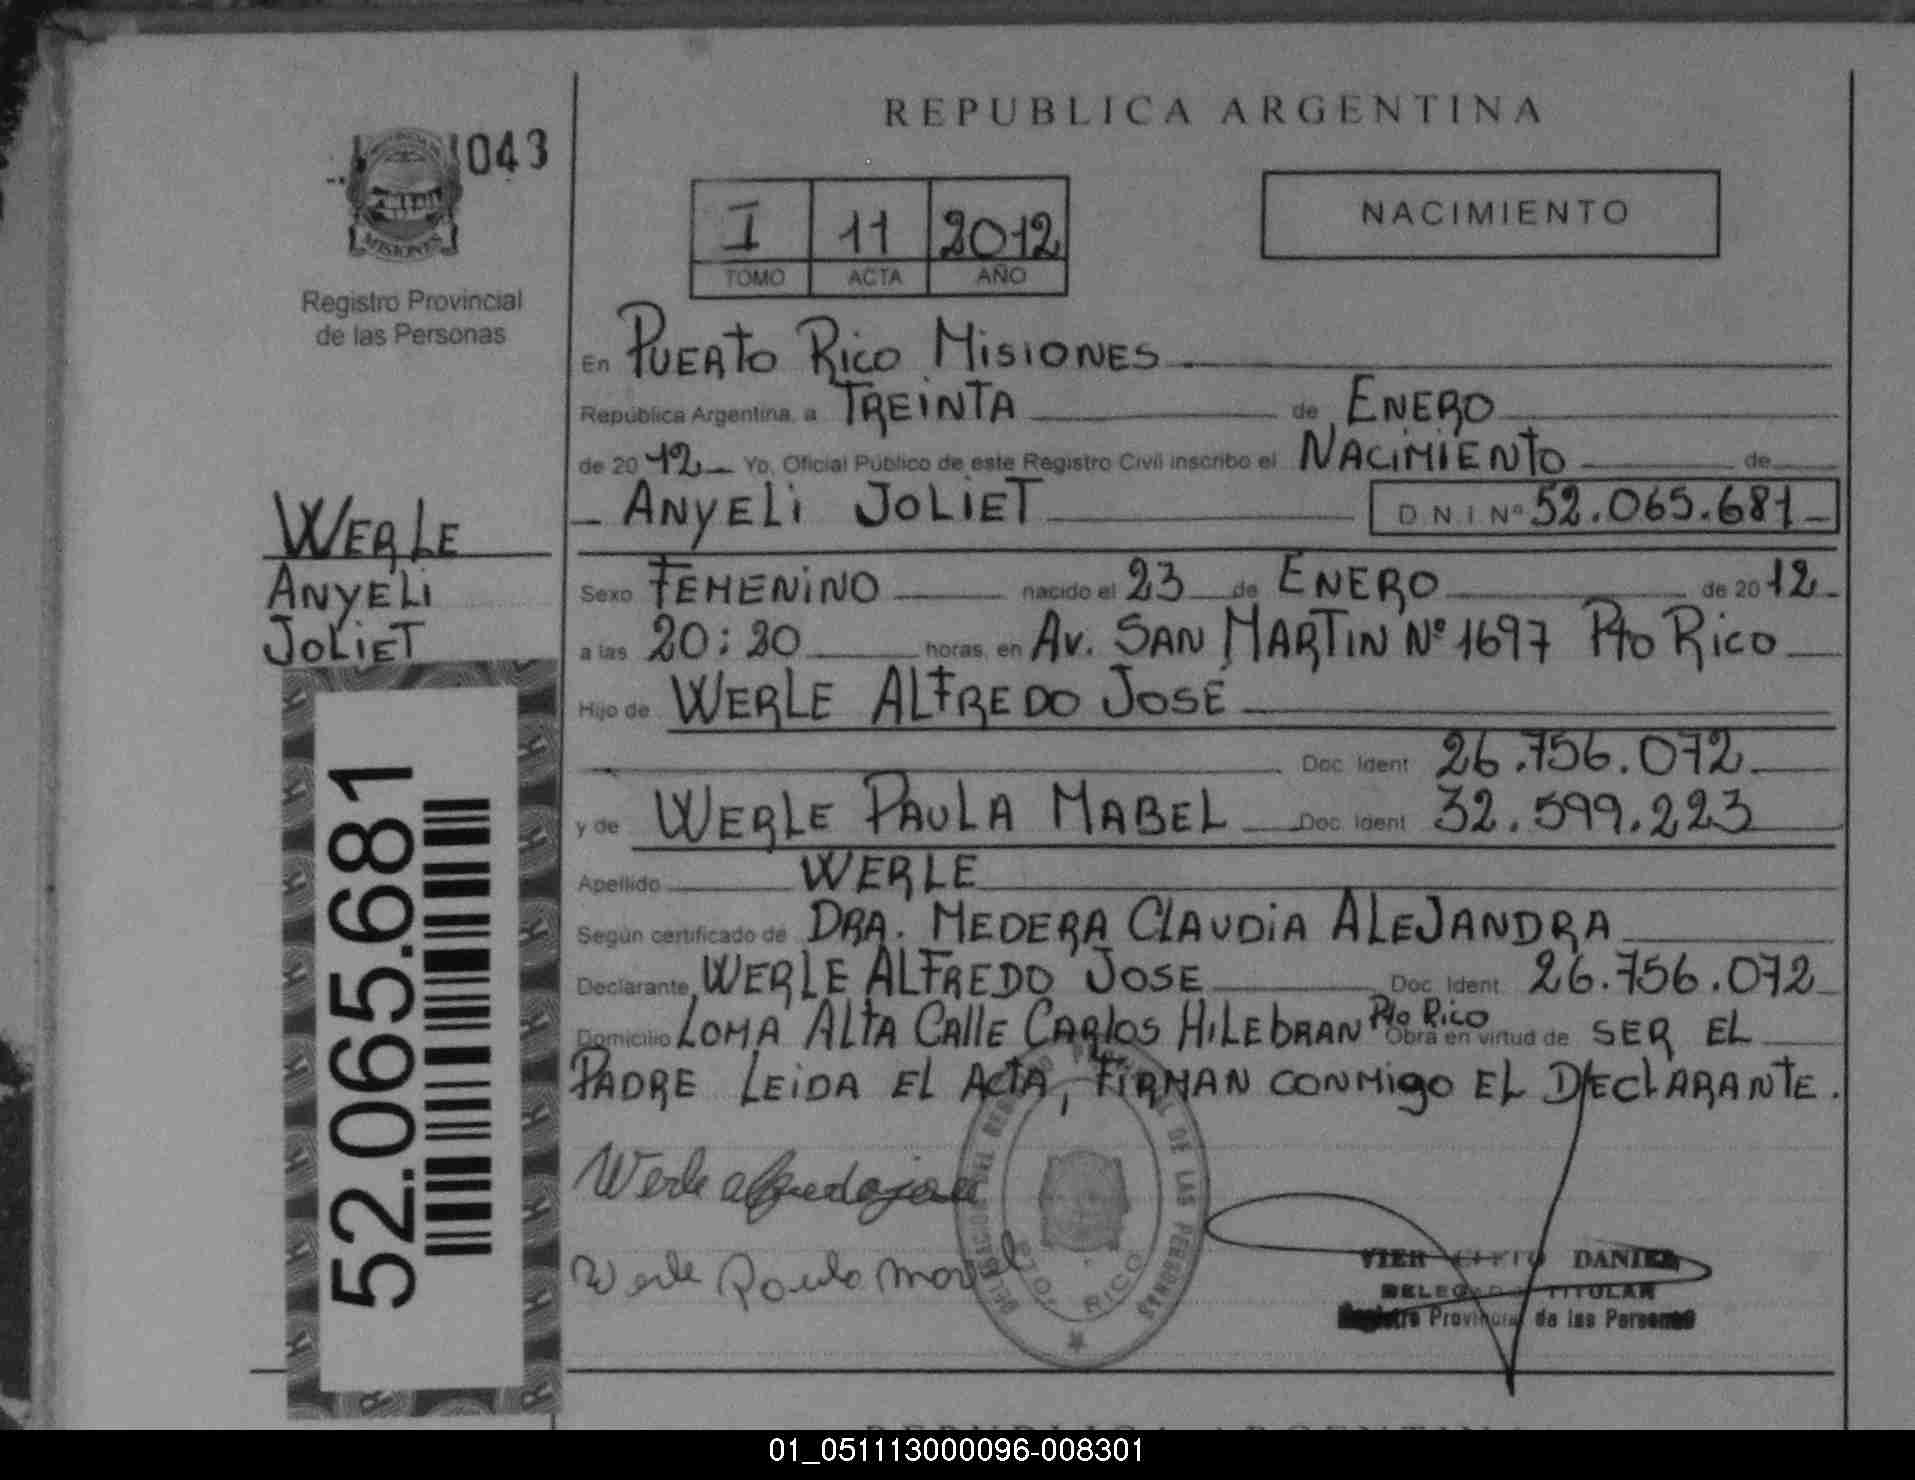 REPUBLICA ARGENTINA
043
MISIONES
Registro Provincial
de las Personas
I 11 2012
TOMO ACTA AÑO
NACIMIENTO
En PUERTO RICO MISIONES
República Argentina, a TREINTA de ENERO
de 2012 Yo, Oficial Público de este Registro Civil inscribo el NACIMIENTO de
ANYELI JOLIET D N I Nº 52.065.681
WERLE
ANYELI
JOLIET
Sexo FEMENINO nacido el 23 de ENERO de 2012
a las 20:20 horas, en AV. SAN MARTIN Nº 1697 Pto RICO
Hijo de WERLE ALFREDO JOSÉ
Doc. Ident 26.756.072
y de WERLE PAULA MABEL Doc. Ident 32.599.223
Apellido WERLE
Según certificado de DRA. MEDERA CLAUDIA ALEJANDRA
Declarante WERLE ALFREDO JOSE Doc. Ident. 26.756.072
Domicilio LOMA ALTA CALLE CARLOS HILEBRAN Pto RICO Obra en virtud de SER EL
PADRE LEIDA EL ACTA, FIRMAN CONMIGO EL DECLARANTE.
52.065.681
Werle alfredo jose
Werle Paula
DE LAS PERSONAS
PTO. RICO
VIER DANIEL
DELEGADO TITULAR
Registro Provincial de las Personas
REPUBLICA ARGENTINA
01_051113000096-008301